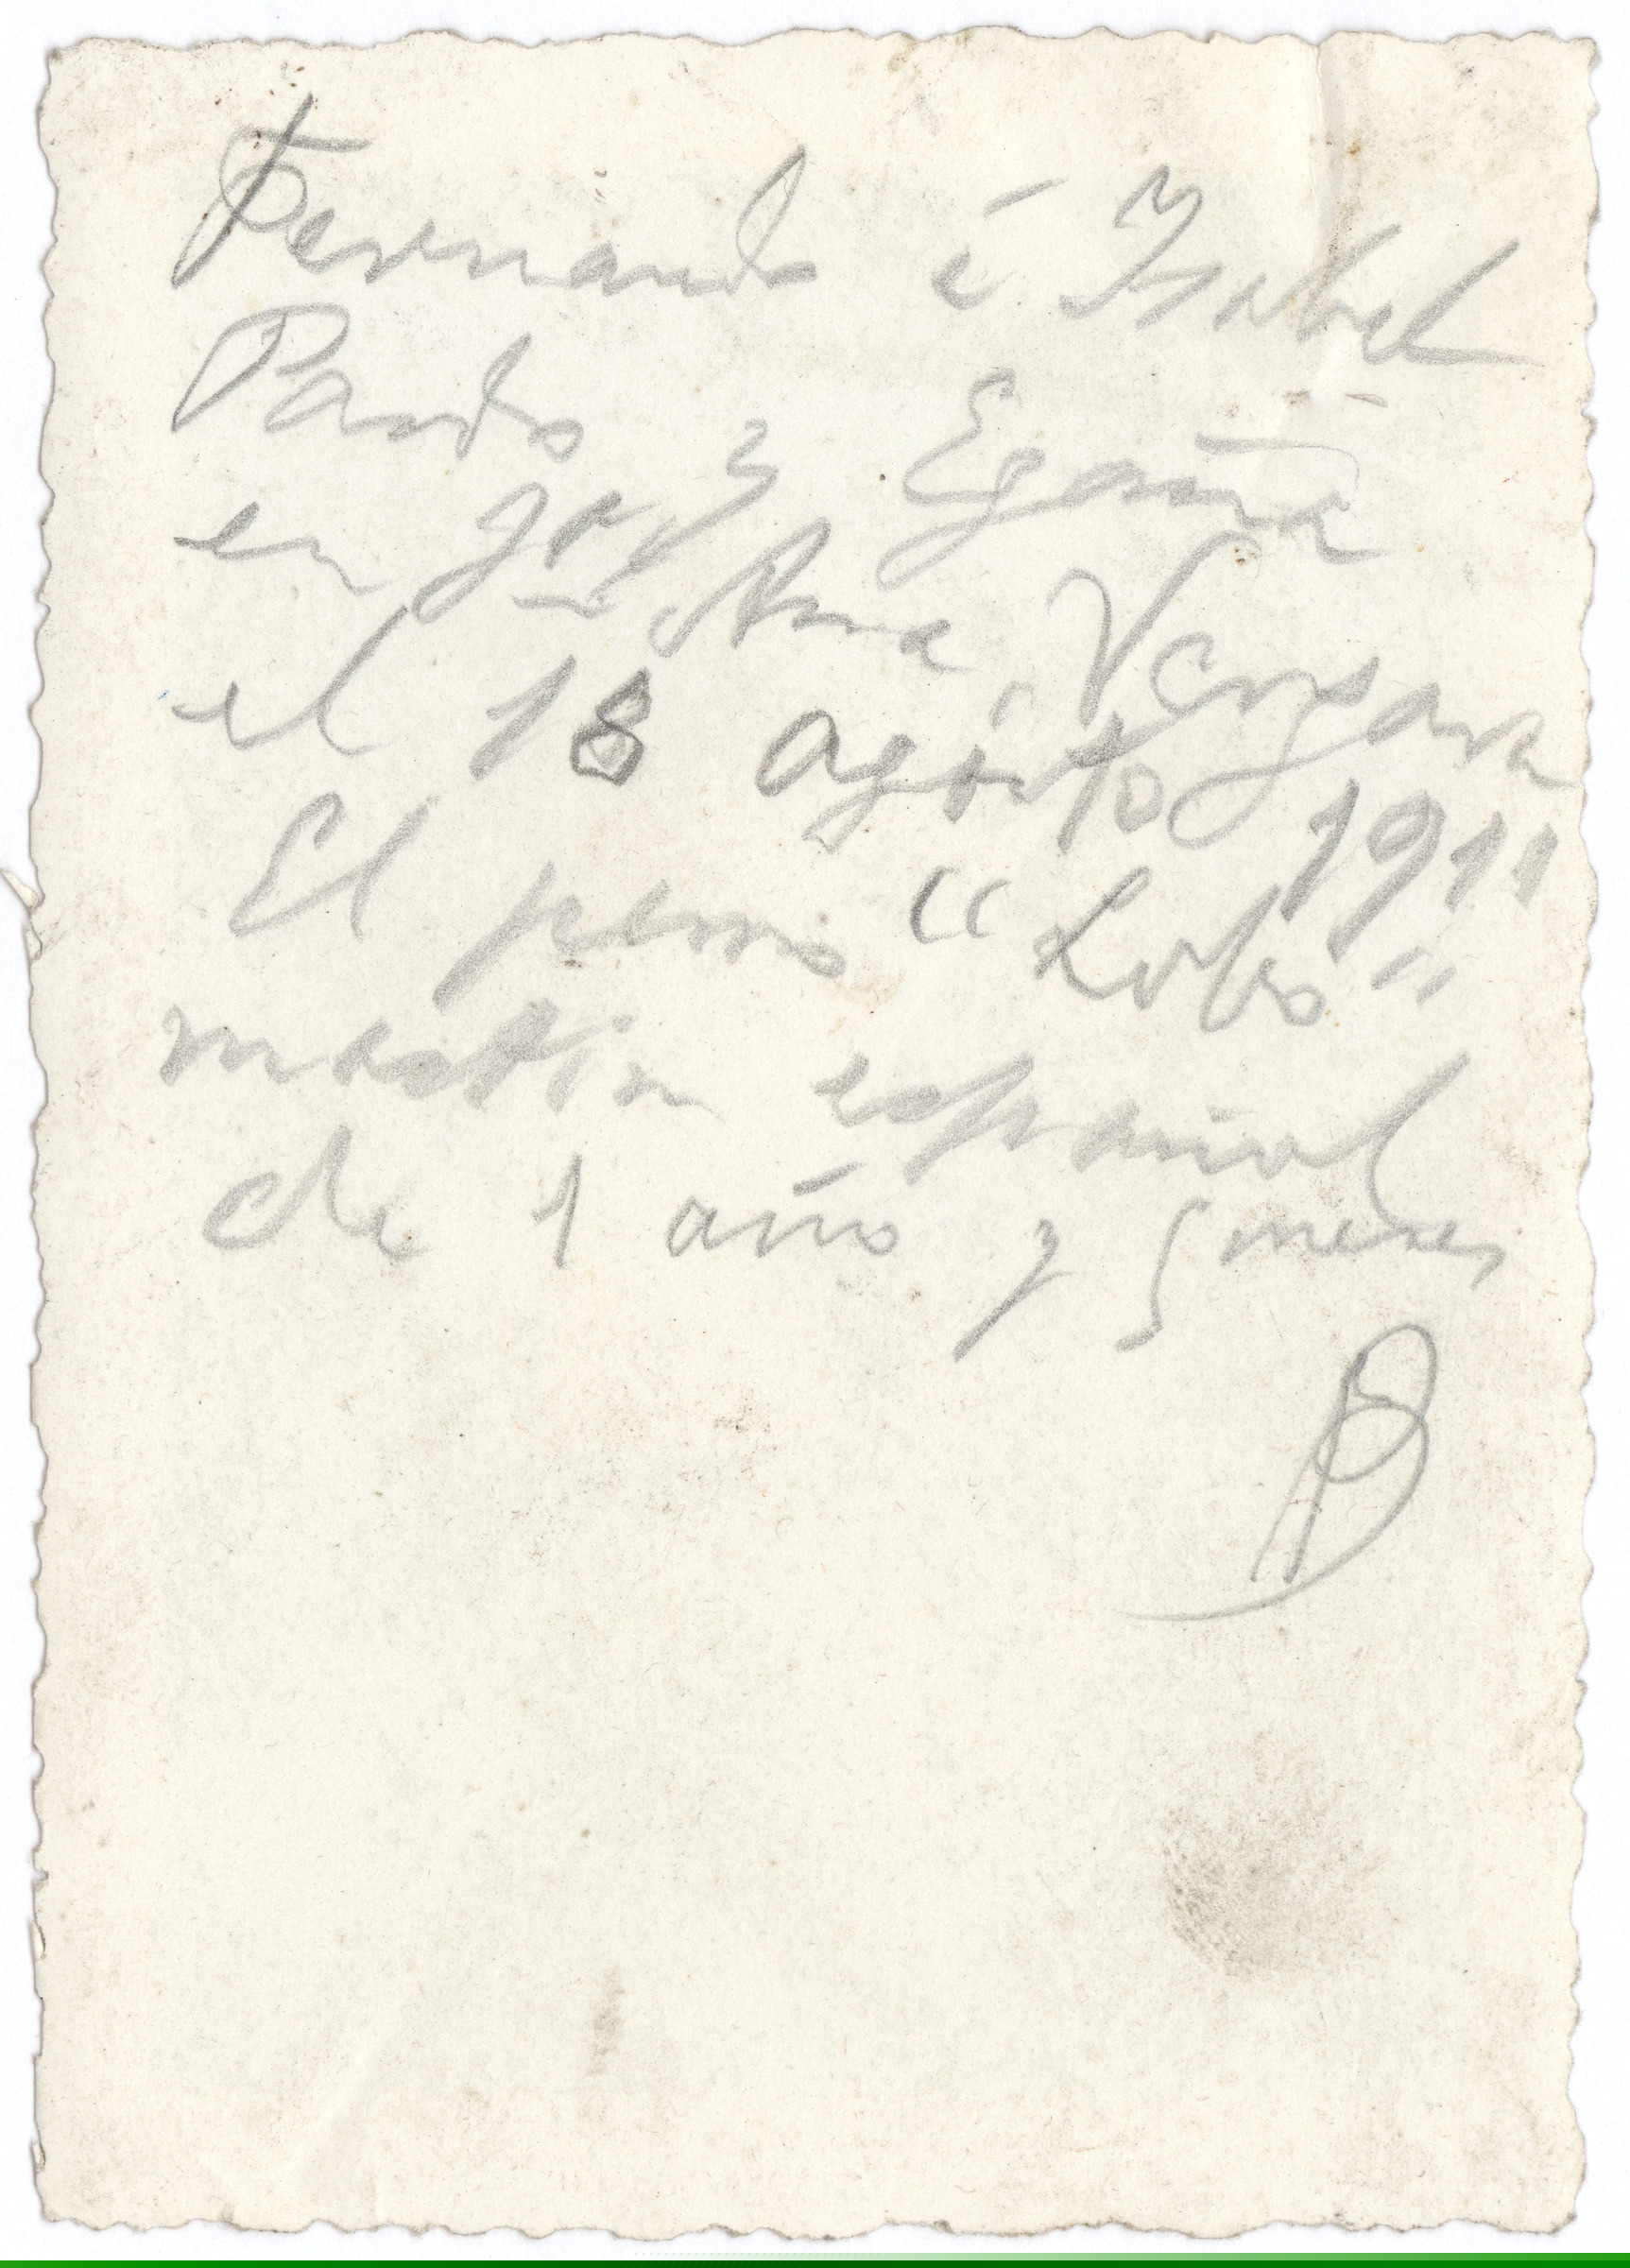 Fernando é Isabel
Pardo y Egaña
en Ana Vergara
el 18 agosto 1911
El perro "Lobo"
mastin español
de 1 año y 5 meses